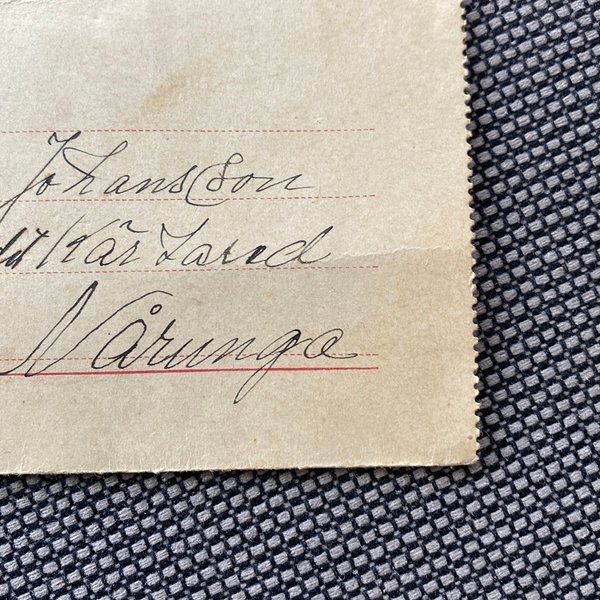 Johansson
Kärtared
Nårunga